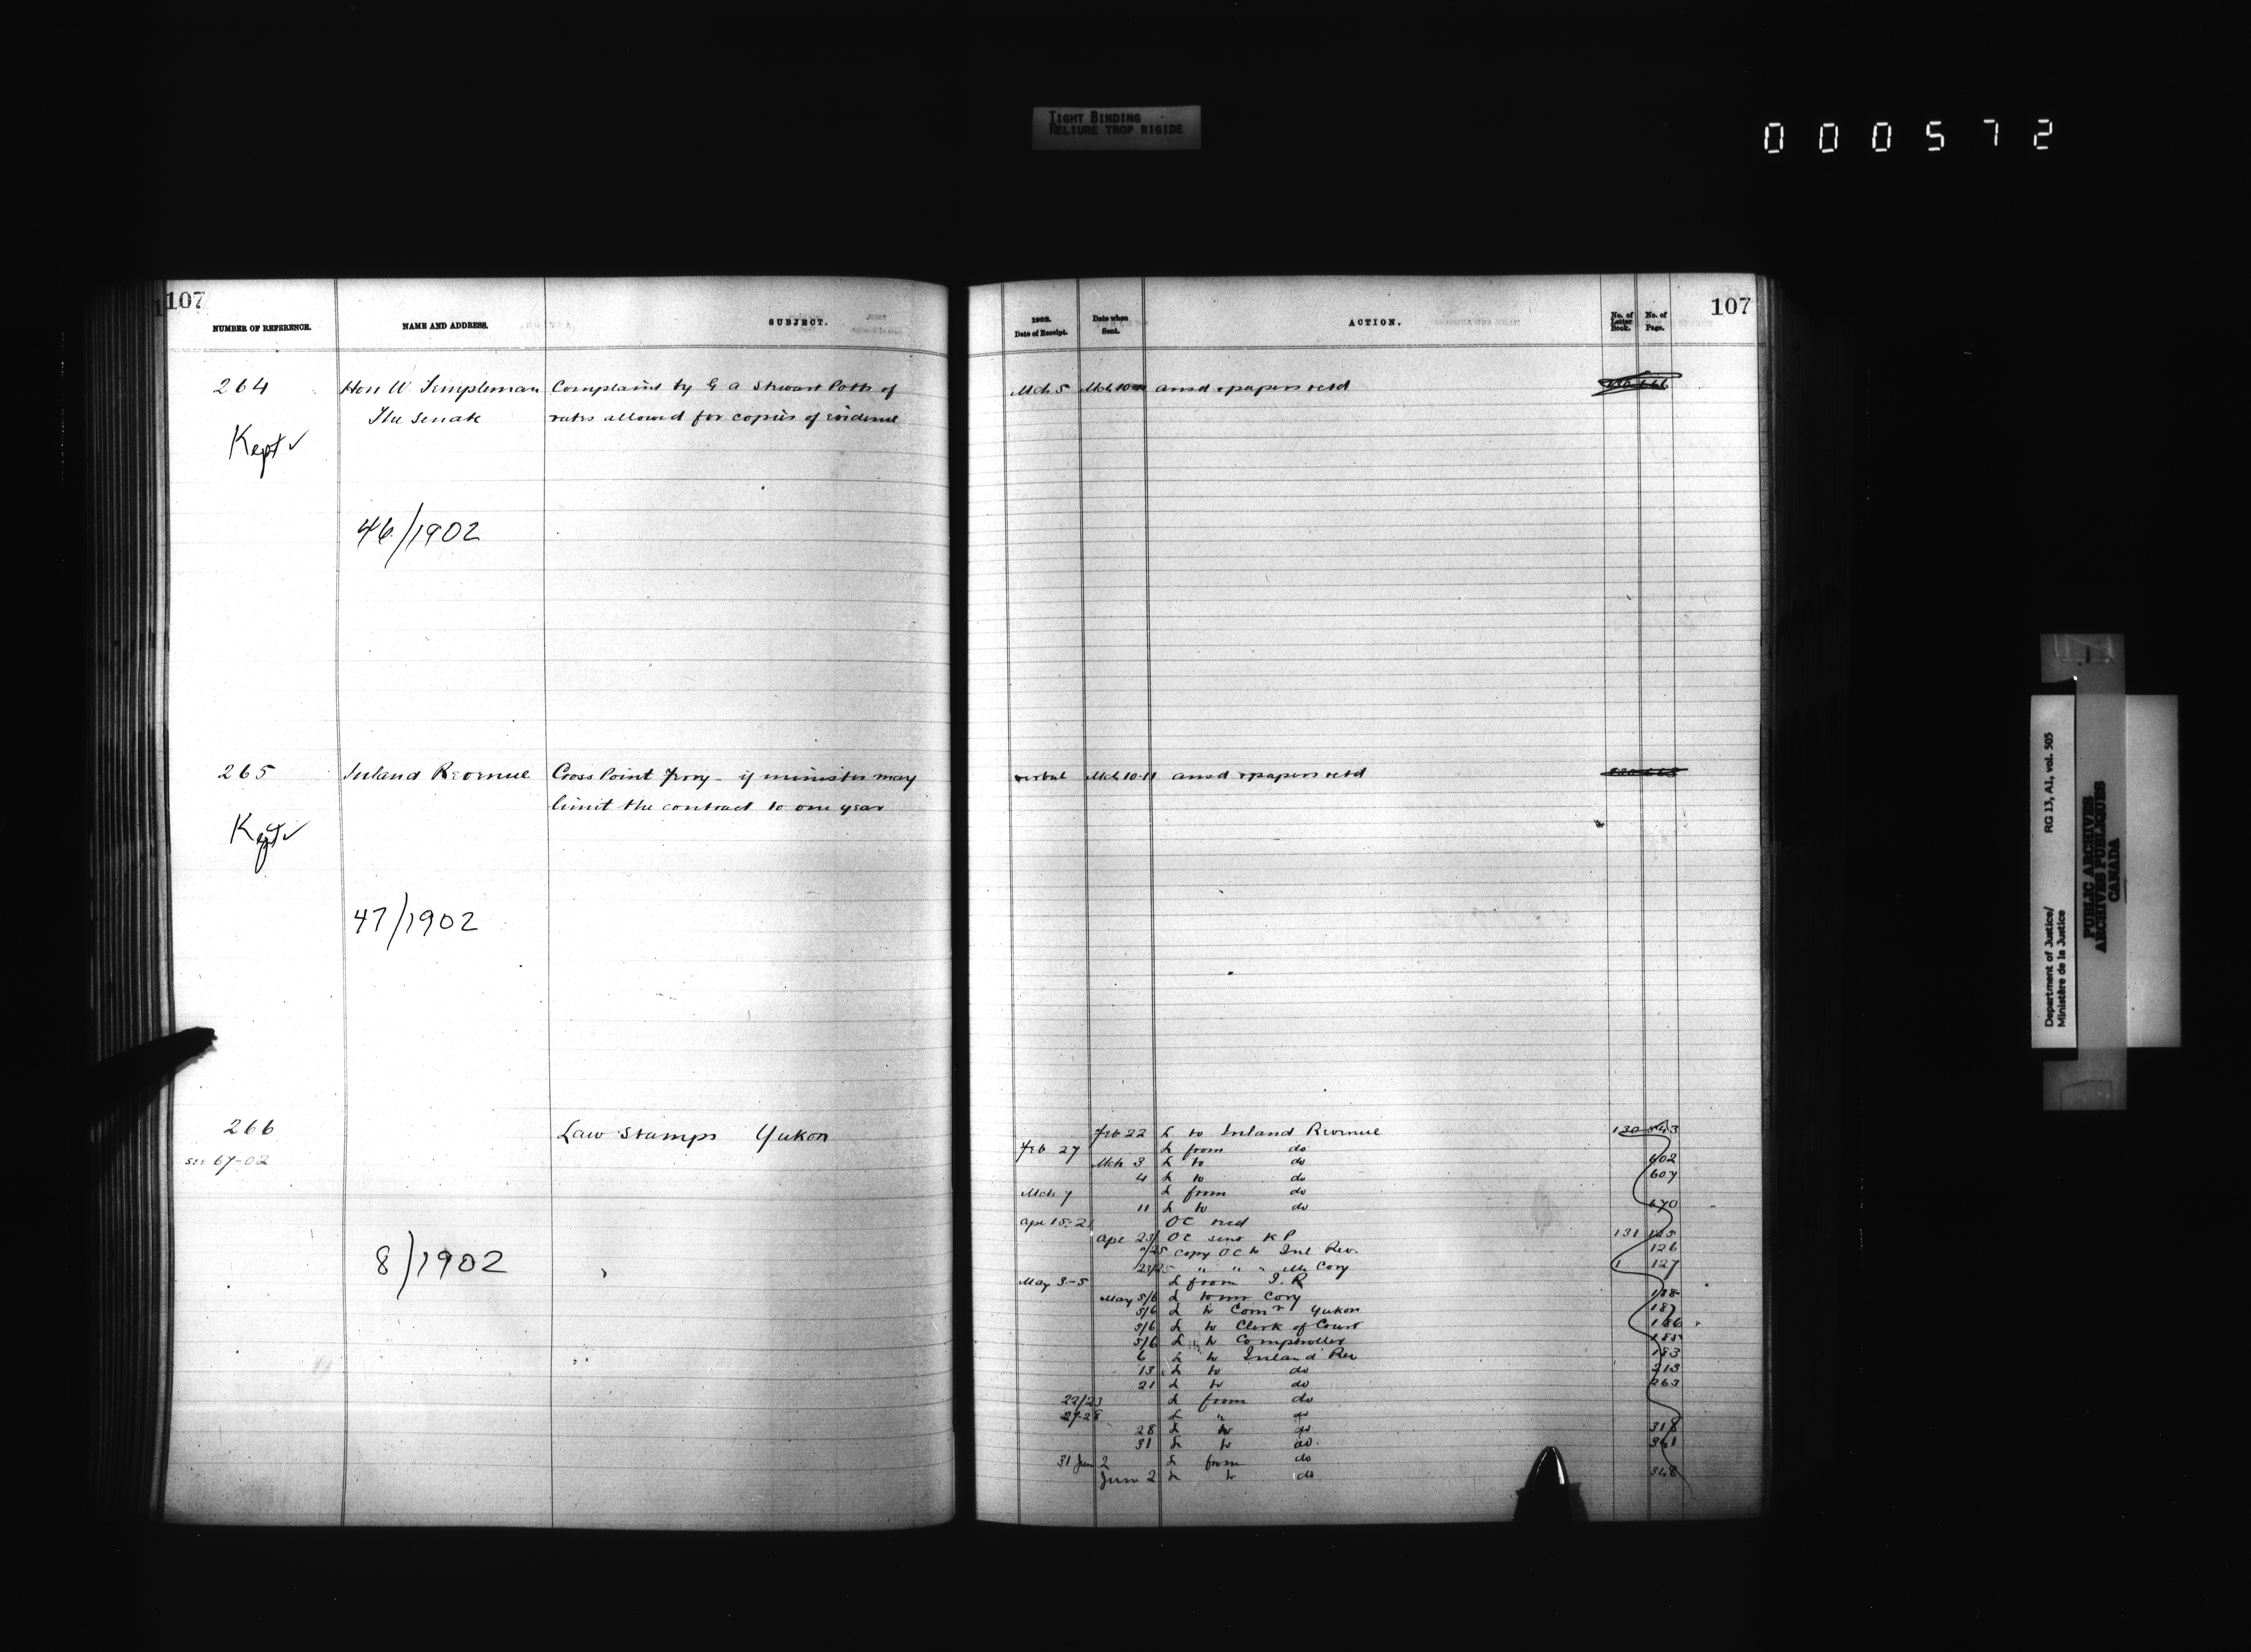 TIGHT BINDING
RELIURE TROP RIGIDE
000572
107
NUMBER OF REFERENCE. NAME AND ADDRESS. SUBJECT.
264 Hon W Templeman Complaint by G A Stewart Potts of
The Senate rates allowed for copies of evidence
Kept ✓
46/1902
265 Inland Revenue Cross Point Ferry - if minister may
limit the contract to one year
Kept ✓
47/1902
266 Law Stamps Yukon
see 67-02
8/1902
107
1902. Date of Receipt. Date when Sent. ACTION. No. of Letter Book. No. of Page.
Mch 5 Mch 10 ansd & papers retd
verbal Mch 10-11 ansd & papers retd
Feb 22 L to Inland Revenue 130
Feb 27 L from do
Mch 3 L to do 602
4 L to do 607
Mch 7 L from do
11 L to do 670
Apl 15-21 OC recd
Apl 23/ OC sent K P 131 125
/25 Copy OC to Inl Rev. 126
23/25 " " " Mr Cory 127
May 3-5 L from I.R
May 5/6 L to Mr Cory 188
5/6 L to Comr Yukon 187
5/6 L to Clerk of Court 186
5/6 L to Comptroller 185
6 L to Inland Rev 183
13 L to do 213
21 L to do 263
22/23 L from do
27-28 L " do
28 L to do 318
31 L to do. 341
31 Jun 2 L from do
June 2 L to do 348
Department of Justice/ RG 13, A1, vol. 505
Ministère de la Justice
PUBLIC ARCHIVES
ARCHIVES PUBLIQUES
CANADA